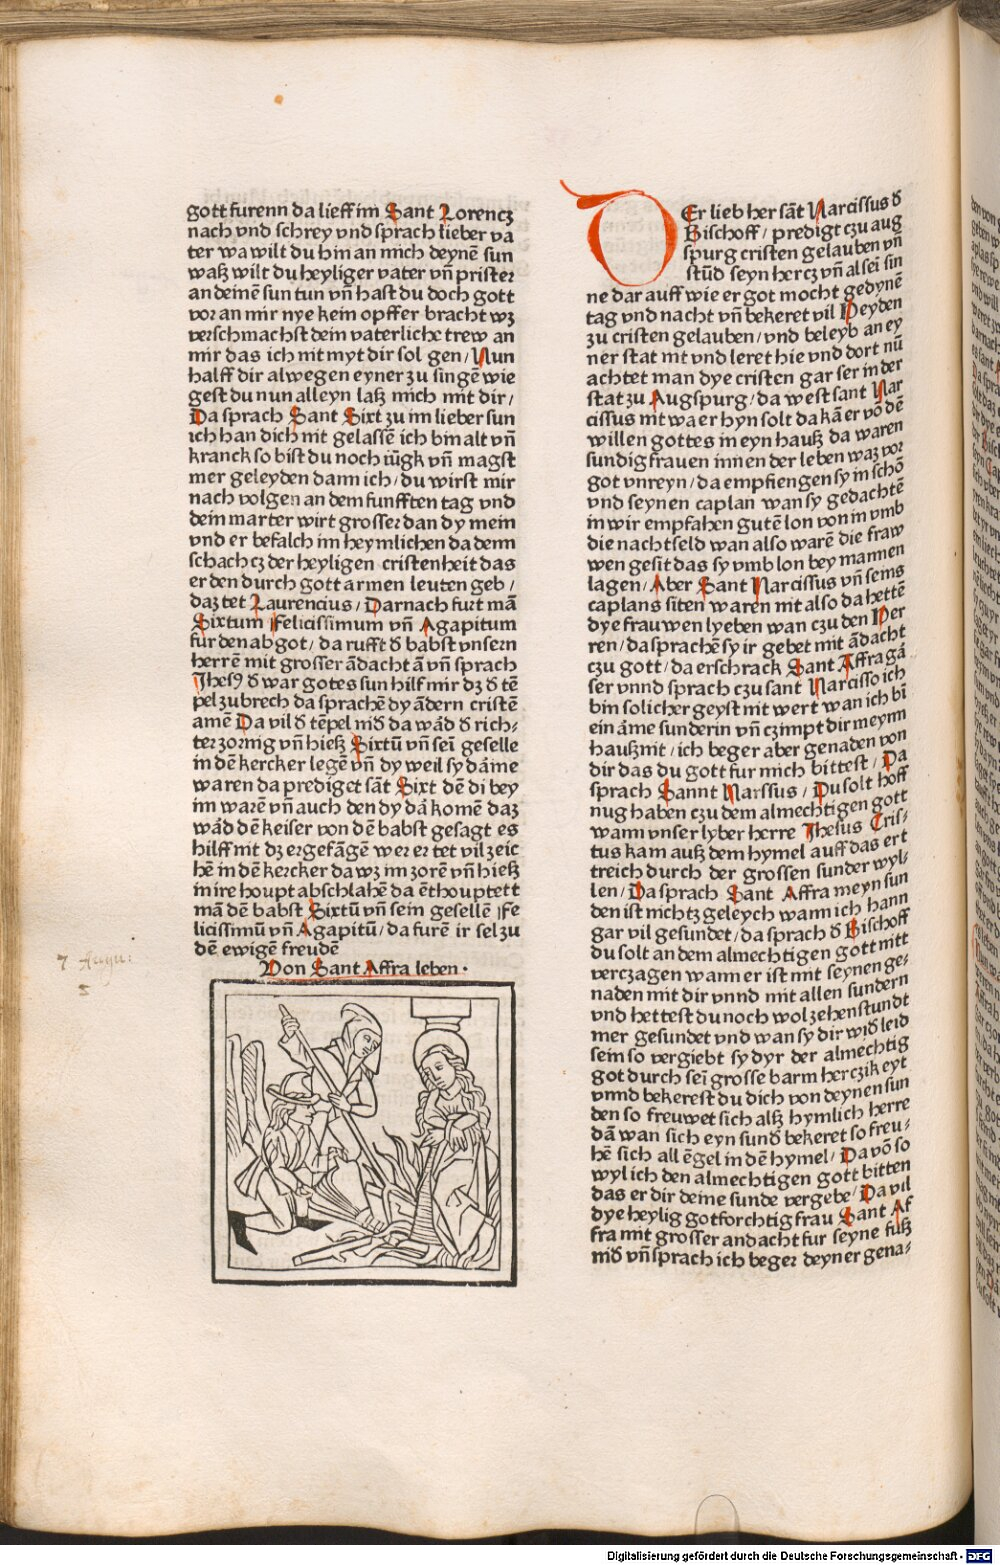 gott furenn da lieff im Sant Lorencz
nach vnd schrey vnd sprach lieber va
ter wa wilt du hin an mich deynē sun
waß wilt du heyliger vater vn̄ prister
an deinē sun tun vn̄ hast du doch gott
vor an mir nye kein opffer bracht wz
verschmachst dein vaterliche trew an
mir das ich nit myt dir sol gen / Nun
halff dir alwegen eyner zu singē wie
gest du nun alleyn laß mich mit dir /
Da sprach Sant Sixt zu im lieber sun
ich han dich nit gelassē ich bin alt vn̄
kranck so bist du noch iūgk vn̄ magst
mer geleyden dann ich / du wirst mir
nach volgen an dem funfften tag vnd
dein marter wirt grosser dan dy mein
vnd er befalch im heymlichen da denn
schach cz der heyligen cristenheit das
er den durch gott armen leuten geb /
daz tet Laurencius / Darnach furt mā
Sixtum Felicissimum vn̄ Agapitum
fur den abgot / da rufft d̄ babst vnsern
herrē mit grosser ādacht ā vn̄ sprach
Jhesꝰ d̄ war gotes sun hilf mir dz d̄ tē
pel zubrech da sprachē dy ādern cristē
amē Da vil d̄ tēpel nid̄ da wād d̄ rich-
ter zornig vn̄ hieß Sixtū vn̄ sei geselle
in dē kercker legē vn̄ dy weil sy dāme
waren da prediget sāt Sixt dē di bey
im warē vn̄ auch den dy dā komē daz
wād dē keiser von dē babst gesagt es
hilff nit dz er gefāgē wer er tet vil zeic
hē in dē kercker da wz im zorē vn̄ hieß
in ire houpt abschlahē da ēthouptett
mā dē babst Sixtū vn̄ sein gesellē Fe
licissimū vn̄ Agapitū / da furē ir sel zu
dē ewigē freudē
Von Sant Affra leben.
7 Augu:
5
DEr lieb her sāt Narcissus d̄
Bischoff / predigt czu aug
spurg cristen gelauben vn̄
stūd seyn hercz vn̄ al sei sin
ne dar auff wie er got mocht gedynē
tag vnd nacht vn̄ bekeret vil Heyden
zu cristen gelauben / vnd beleyb an ey
ner stat nit vnd leret hie vnd dort nū
achtet man dye cristen gar ser in der
stat zu Augspurg / da west sant Nar
cissus nit wa er hyn solt da kā er vō dē
willen gottes in eyn hauß da waren
sundig frauen innen der leben waz vor
got vnreyn / da empfiengen sy in schō
vnd seynen caplan wan sy gedachtē
in wir empfahen gutē lon von in vmb
die nacht seld wan also warē die fraw
wen gesit das sy vmb lon bey mannen
lagen / Aber Sant Narcissus vn̄ seins
caplans siten waren nit also da hettē
dye frauwen lyeben wan czu den Her
ren / da sprachē sy ir gebet mit ādacht
czu gott / da erschrack Sant Affra gā
ser vnnd sprach czu sant Narcisso ich
bin solicher geyst nit wert wan ich bī
ein āme sunderin vn̄ czimpt dir meym
hauß nit / ich beger aber genaden von
dir das du gott fur mich bittest / Da
sprach Sannt Narssus / Du solt hoff
nug haben czu dem almechtigen gott
wann vnser lyber herre Jhesus Cris-
tus kam auß dem hymel auff das ert
treich durch der grossen sunder wyl-
len / Da sprach Sant Affra meyn sun
den ist nichtz geleych wann ich hann
gar vil gesundet / da sprach d̄ Bischoff
du solt an dem almechtigen gott nitt
verczagen wann er ist mit seynen ge-
naden mit dir vnnd mit allen sundern
vnd hettest du noch wol zehenstundt
mer gesundet vnd wan sy dir wid̄ leid
sein so vergiebt sy dyr der almechtig
got durch sei grosse barmherczikeyt
vnnd bekerest du dich von deynen sun
den so freuwet sich alß hymlich herre
dā wan sich eyn sund̄ bekeret so freu-
hē sich all ēgel in dē hymel / Da vō so
wyl ich den almechtigen gott bitten
das er dir deine sunde vergebe / Da vil
dye heylig gotforchtig frau Sant Af
fra mit grosser andacht fur seyne fuß
nid̄ vn̄ sprach ich beger deyner gena-
Digitalisierung gefördert durch die Deutsche Forschungsgemeinschaft - DFG